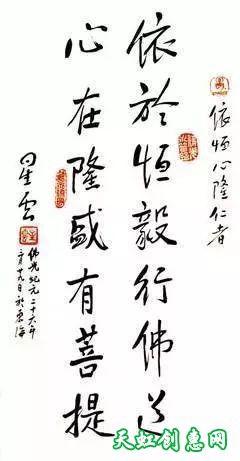 依恒心隆仁者
依於恒毅行佛道
心在隆盛有菩提
星雲
佛光紀元二十六年
二月十九日於東海
天虹创意网